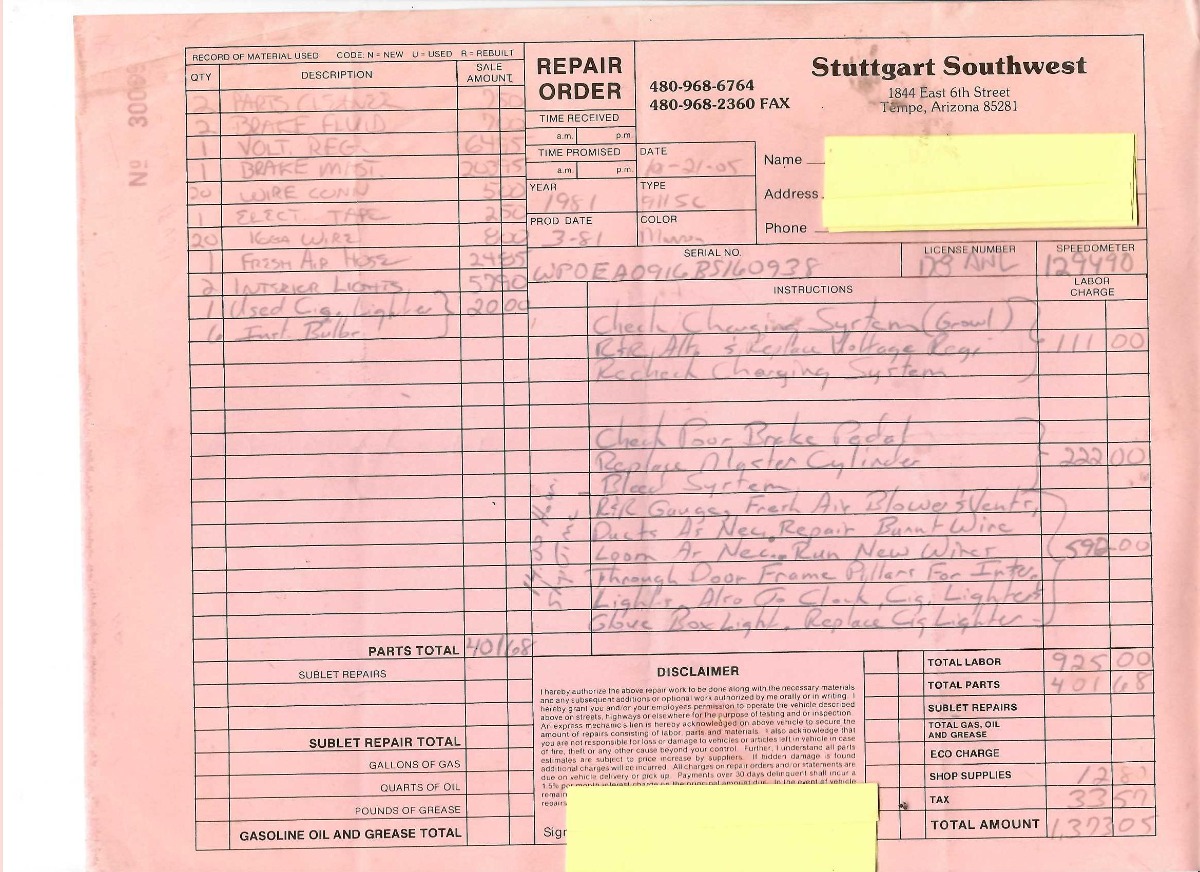 No 30009
RECORD OF MATERIAL USED CODE: N = NEW U = USED R = REBUILT
QTY DESCRIPTION SALE AMOUNT
2 PARTS CLEANER 7 50
2 BRAKE FLUID 7 00
1 VOLT. REG. 64 95
1 BRAKE M/ST. 203 95
20 WIRE CONN 5 00
1 ELECT. TAPE 2 50
20 16GA WIRE 8 00
1 FRESH AIR HOSE 24 85
2 INTERIOR LIGHTS 57 90
1 Used Cig. Lighter 20 00
6 Inst. Bulbs
PARTS TOTAL 401 68
SUBLET REPAIRS
SUBLET REPAIR TOTAL
GALLONS OF GAS
QUARTS OF OIL
POUNDS OF GREASE
GASOLINE OIL AND GREASE TOTAL
REPAIR ORDER
480-968-6764
480-968-2360 FAX
Stuttgart Southwest
1844 East 6th Street
Tempe, Arizona 85281
TIME RECEIVED
a.m. p.m.
TIME PROMISED
a.m. p.m.
DATE
10-21-05
YEAR
1981
TYPE
911SC
PROD DATE
3-81
COLOR
Maroon
Name
Address
Phone
SERIAL NO.
WPOEA0916BS160938
LICENSE NUMBER
SPEEDOMETER
129490
INSTRUCTIONS
LABOR CHARGE
Check Charging System (Growl)
R&R Alt. & Replace Voltage Reg. 111 00
Recheck Charging System
Check Poor Brake Pedal
Replace Master Cylinder 222 00
Bleed System
R&R Gauges, Fresh Air Blower & Vents,
Ducts As Nec. Repair Burnt Wire
Loom As Nec. Run New Wires 592 00
Through Door Frame Pillars For Inter.
Lights, Also To Clock, Cig. Lighter
Glove Box Light. Replace Cig Lighter
DISCLAIMER
I hereby authorize the above repair work to be done along with the necessary materials
and any subsequent additions or optional work authorized by me orally or in writing. I
hereby grant you and/or your employees permission to operate the vehicle described
above on streets, highways or elsewhere for the purpose of testing and/or inspection.
An express mechanic's lien is hereby acknowledged on above vehicle to secure the
amount of repairs consisting of labor, parts and materials. I also acknowledge that
you are not responsible for loss or damage to vehicles or articles left in vehicle in case
of fire, theft or any other cause beyond your control. Further, I understand all parts
estimates are subject to price increase by suppliers. If hidden damage is found
additional charges will be incurred. All charges on repair orders and/or statements are
due on vehicle delivery or pick up. Payments over 30 days delinquent shall incur a
1.5% per month interest charge on the principal amount due. In the event of vehicle
remain
repairs
Sign
TOTAL LABOR 925 00
TOTAL PARTS 401 68
SUBLET REPAIRS
TOTAL GAS, OIL AND GREASE
ECO CHARGE
SHOP SUPPLIES 12 81
TAX 33 57
TOTAL AMOUNT 1,373 05